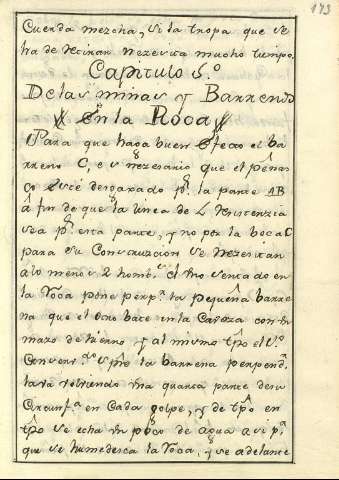 173
Cuerda mezcha, si la tropa que se
ha de retirar nezesita mucho tiempo.
Capitulo 6.º
De las minas y Barrenos
En la Roca
Para que haga buen efecto el ba
rreno C, es nezesario que el peñas
co esté desgaxado pr. la parte AB
â fin de que la linea de L resistenzia
sea pr. esta parte, y no por la boca C
para su Construczion se nezesitan
alo menos 2 hombs. el uno sentado en
la roca pone la pequeña barre
na que el otro bate en la Caveza con un
mazo de hierro y al mismo tpô el 1.º
la barrena
la va volviendo una quarta parte de su
Circunfa. en Cada golpe, y de tpô en
tpô se echa un poco de agua
que se humedesca la roca, y se adelante